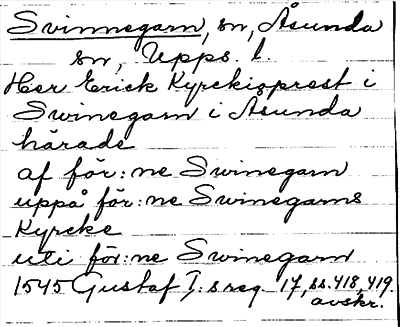 Svinnegarn, sn, Åsunda
sn, Upps. l.
Her Erick Kyrckioprest i
Swinegarn i Asunda
härade
af för:ne Swinegarn
uppå för:ne Swinegarns
Kyrcke
uti för:ne Swinegarn
1545 Gustaf I:s reg 17, ss. 418, 419.
avskr.